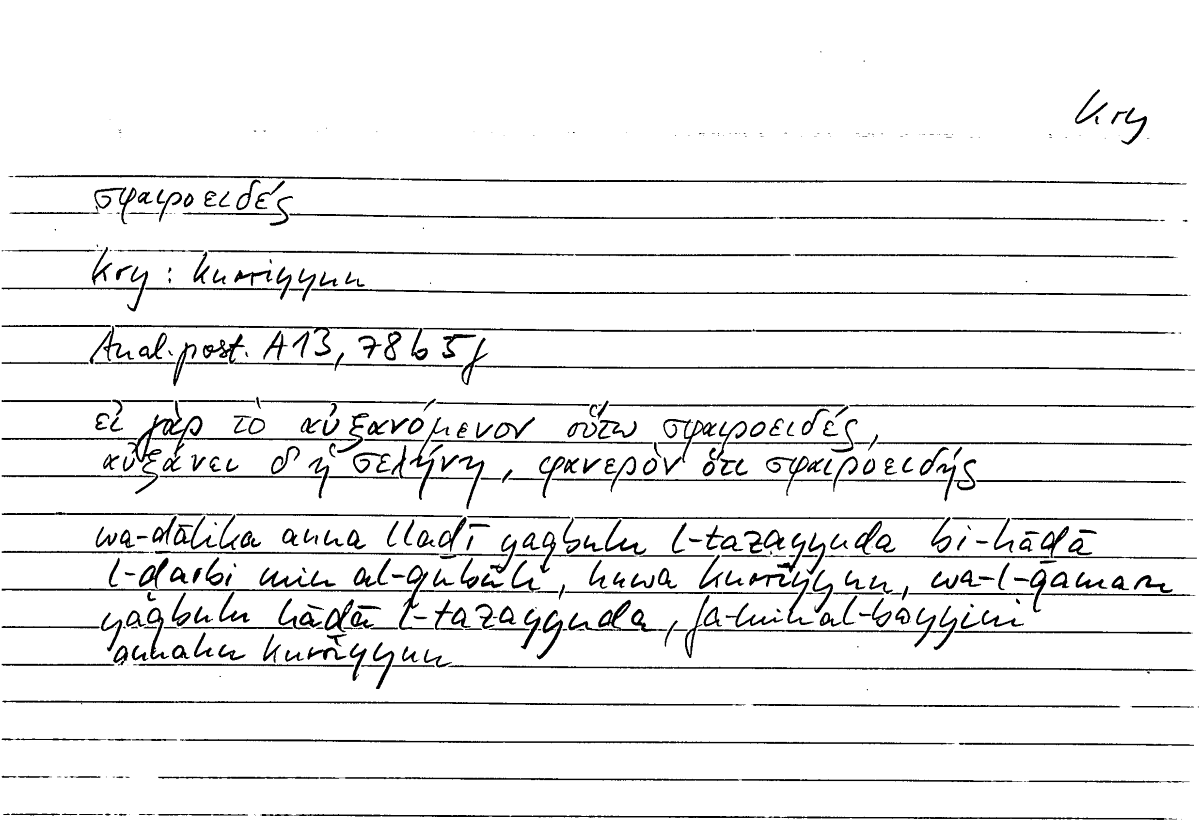 Kry
σφαιροειδές
Kry : kurriyyun
Anal. post. A 13, 78 b 5 f
εἰ γὰρ τὸ αὐξανόμενον οὕτω σφαιροειδές,
αὐξάνει δ' ἡ σελήνη, φανερὸν ὅτι σφαιροειδής
wa-ḏālika anna lladī yaqbulu l-tazayyuda bi-hādā
l-ḍarbi min al-qubūli, huwa kurrīyyun, wa-l-qamaru
yaqbulu hādā l-tazayyuda, fa-min al-bayyini
annahu kurrīyyun